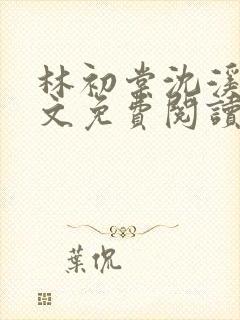 林初棠沈淮
文免費閱讀
葉侃